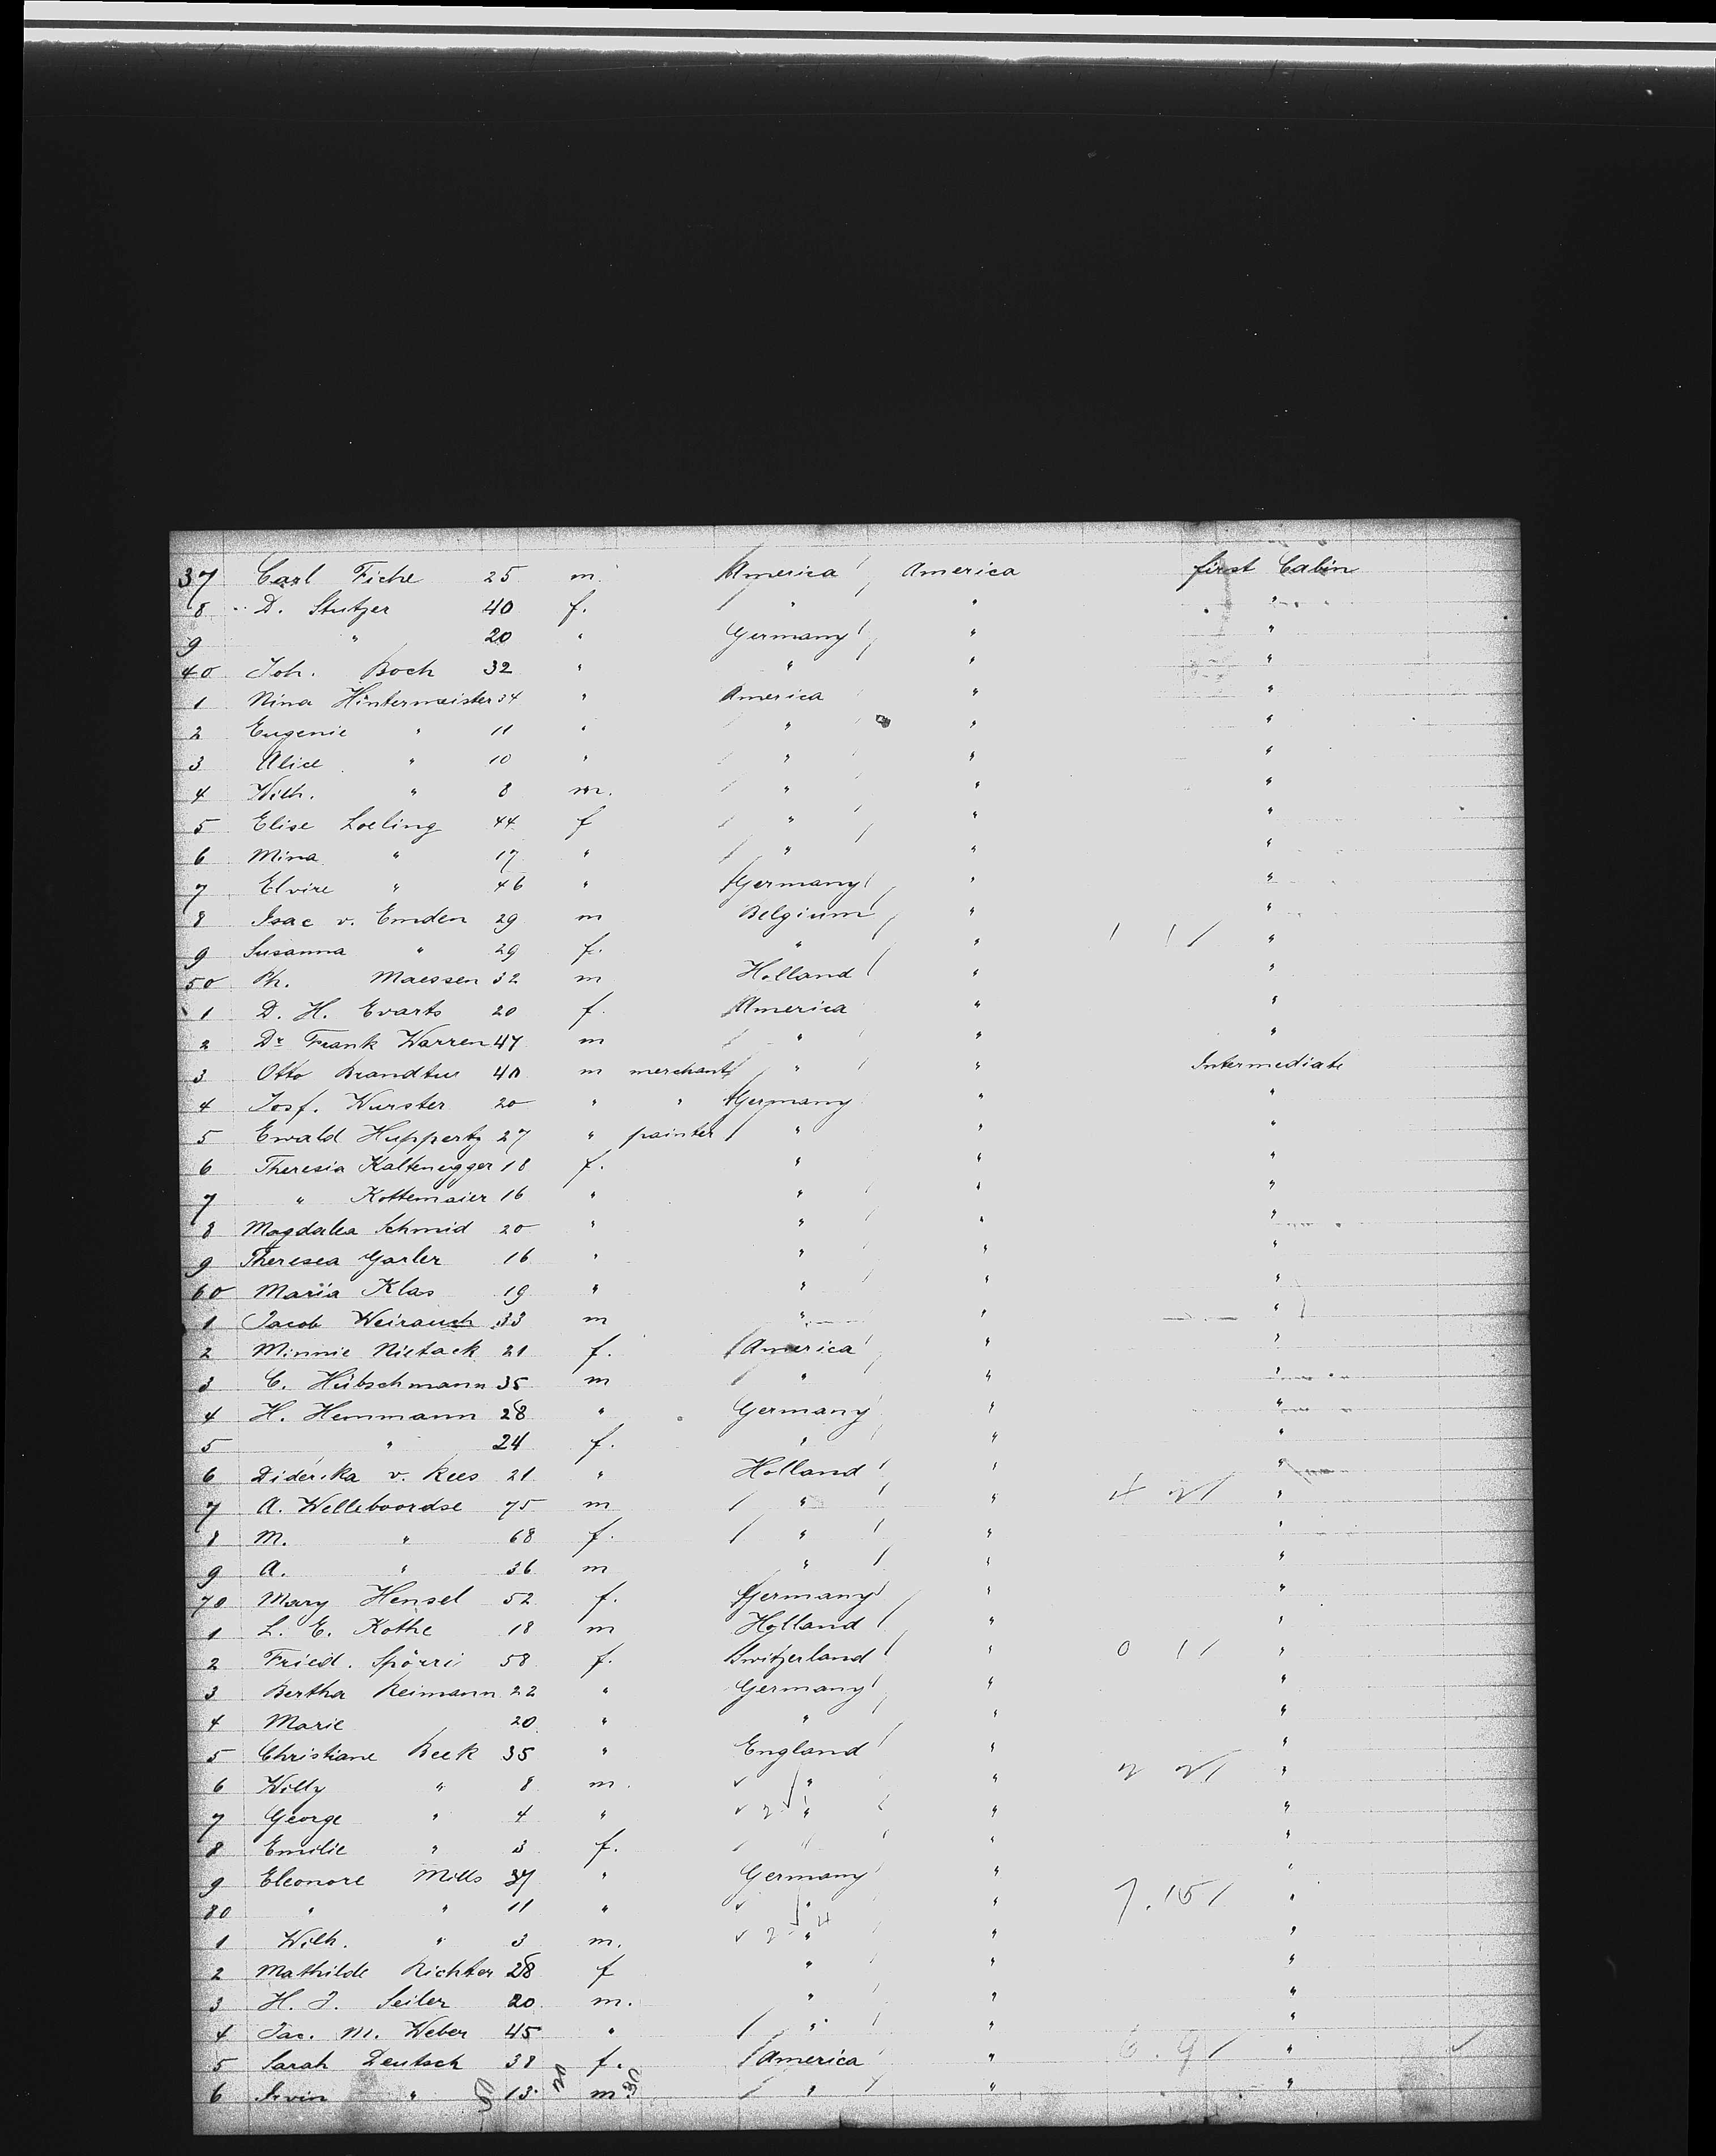 37 Carl Fiche 25 m. America America first Cabin
8 D. Stutzer 40 f. " " "
9 " 20 " Germany " "
40 Joh. Boch 32 " " " "
1 Nina Hintermeister 34 " America " "
2 Eugenie " 11 " " " "
3 Alice " 10 " " " "
4 Wilh. " 8 m. " " "
5 Elise Loeling 44 f " " "
6 Mina " 17 " " " "
7 Elvire " 46 " Germany " "
8 Isac v. Emden 29 m Belgium " "
9 Susanna " 29 f. " " 1 1/ "
50 Ph. Maessen 32 m Holland " "
1 D. H. Evarts 20 f. America " "
2 Dr Frank Warren 47 m " " "
3 Otto Brandtus 40 m merchant " " Intermediate
4 Josf. Wurster 20 " " Germany " "
5 Ewald Huppertz 27 " painter " " "
6 Theresia Kaltenegger 18 f. " " "
7 " Kottemaier 16 " " " "
8 Magdalea Schmid 20 " " " "
9 Theresea Garler 16 " " " "
60 Maria Klas 19 " " " "
1 Jacob Weirauch 33 m " " "
2 Minnie Nietack 21 f. America " "
3 C. Hübschmann 35 m " " "
4 H. Hemmann 28 " Germany " "
5 " 24 f. " " "
6 Diderika v. Rees 21 " Holland " "
7 A. Welleboordse 75 m " " "
8 M. " 68 f. " " "
9 A. " 36 m " " "
70 Mary Hensel 52 f. Germany " "
1 L. E. Kothe 18 m Holland " "
2 Fried. Spörri 58 f. Switzerland " 0 1/ "
3 Bertha Reimann 22 " Germany " "
4 Marie 20 " " " "
5 Christiane Beek 35 " England " "
6 Willy " 8 m. " " "
7 George " 4 " " " "
8 Emilie " 3 f. " " "
9 Eleonore Mills 37 " Germany " "
80 " " 11 " " " 7.15/ "
1 Wilh. " 3 m. " " "
2 Mathilde Richter 28 f " " "
3 H. J. Seiler 20 m. " " "
4 Jac. M. Weber 45 " " " "
5 Sarah Deutsch 38 f. America " 6.9/ "
6 Irvin " 13 m " " "